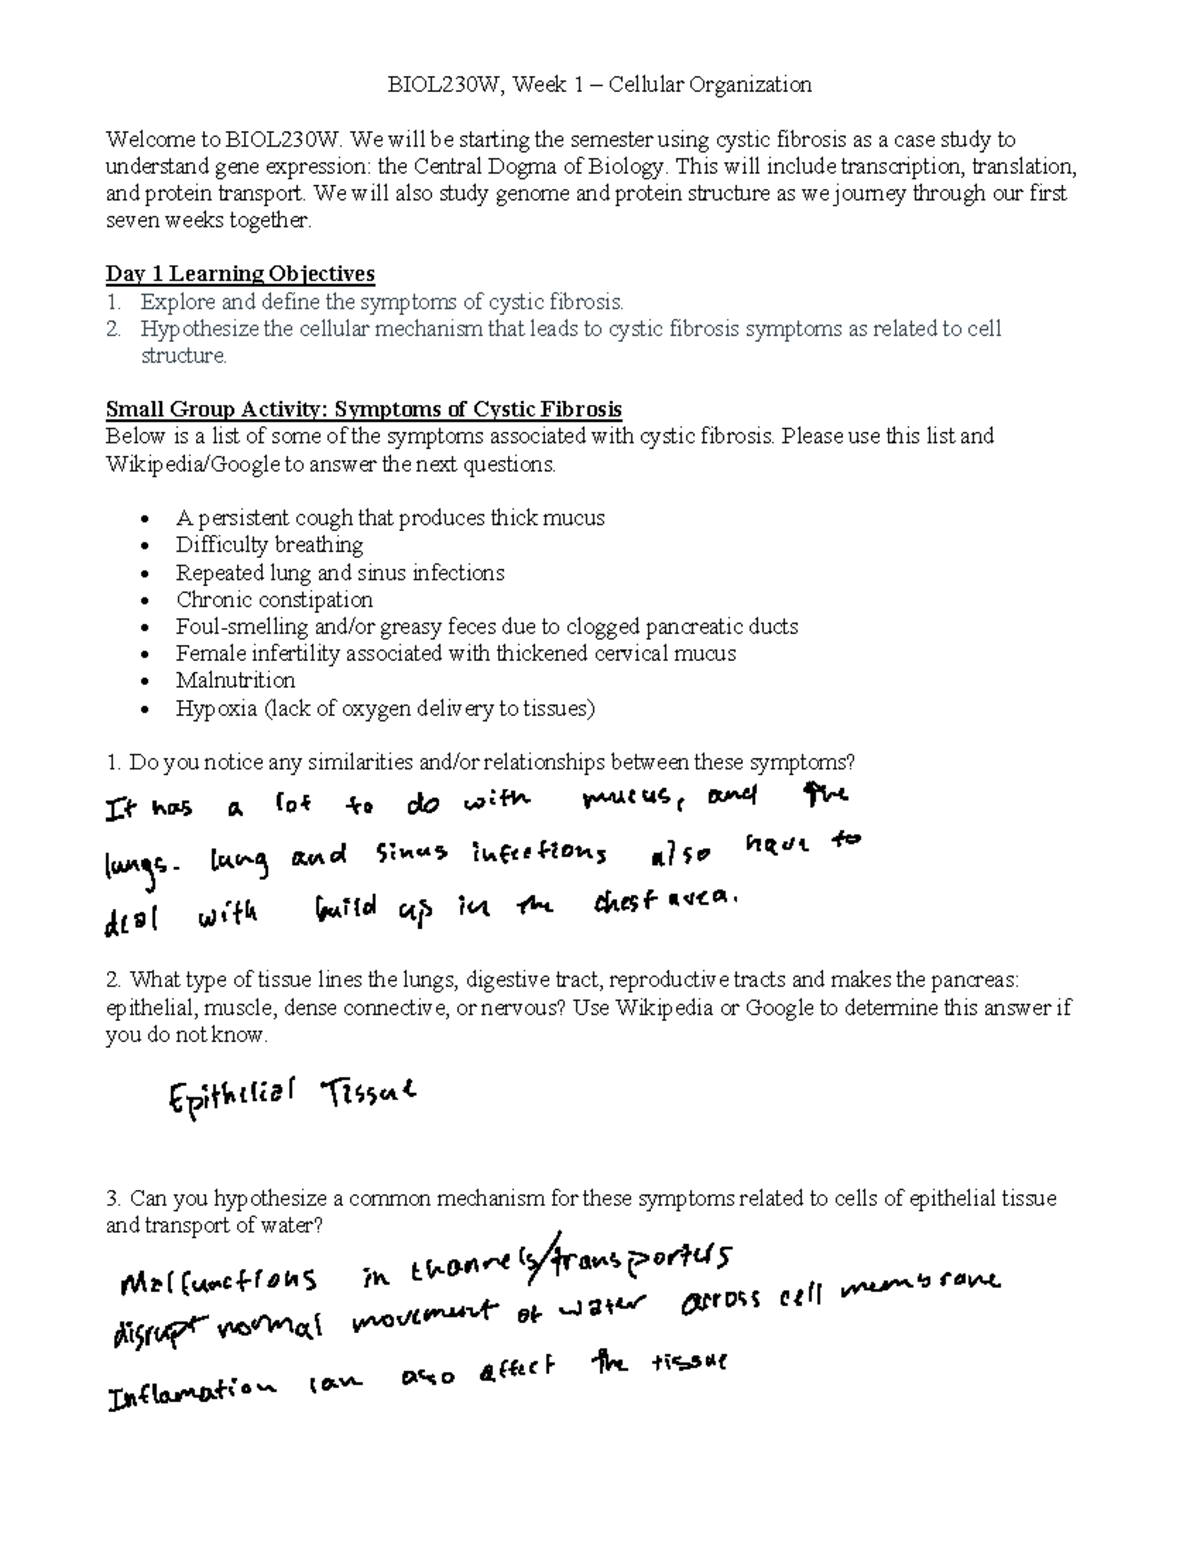 BIOL230W, Week 1 – Cellular Organization
Welcome to BIOL230W. We will be starting the semester using cystic fibrosis as a case study to
understand gene expression: the Central Dogma of Biology. This will include transcription, translation,
and protein transport. We will also study genome and protein structure as we journey through our first
seven weeks together.
Day 1 Learning Objectives
1. Explore and define the symptoms of cystic fibrosis.
2. Hypothesize the cellular mechanism that leads to cystic fibrosis symptoms as related to cell
structure.
Small Group Activity: Symptoms of Cystic Fibrosis
Below is a list of some of the symptoms associated with cystic fibrosis. Please use this list and
Wikipedia/Google to answer the next questions.
• A persistent cough that produces thick mucus
• Difficulty breathing
• Repeated lung and sinus infections
• Chronic constipation
• Foul-smelling and/or greasy feces due to clogged pancreatic ducts
• Female infertility associated with thickened cervical mucus
• Malnutrition
• Hypoxia (lack of oxygen delivery to tissues)
1. Do you notice any similarities and/or relationships between these symptoms?
It has a lot to do with mucus, and the
lungs. lung and sinus infections also have to
deal with build up in the chest area.
2. What type of tissue lines the lungs, digestive tract, reproductive tracts and makes the pancreas:
epithelial, muscle, dense connective, or nervous? Use Wikipedia or Google to determine this answer if
you do not know.
Epithelial Tissue
3. Can you hypothesize a common mechanism for these symptoms related to cells of epithelial tissue
and transport of water?
Malfunctions in channels/transporters
disrupt normal movement of water across cell membrane
Inflamation can also affect the tissue